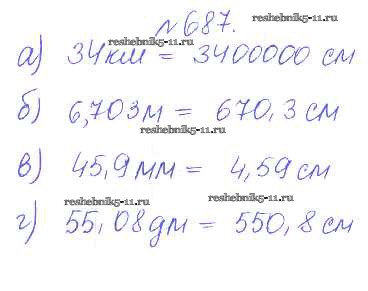 №687.
reshebnik5-11.ru
reshebnik5-11.ru
а) 34км = 3400000 см
б) 6,703м = 670,3 см
reshebnik5-11.ru
в) 45,9мм = 4,59 см
reshebnik5-11.ru reshebnik5-11.ru
г) 55,08дм = 550,8 см